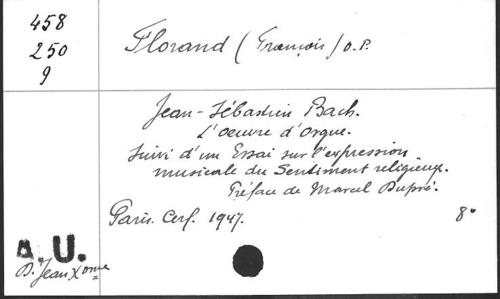 458
250
9
Florand (François) O.P.
Jean-Sébastien Bach.
L'oeuvre d'orgue.
Suivi d'un Essai sur l'expression
musicale du Sentiment religieux.
Préface de Marcel Dupré.
Paris. Cerf. 1947. 8°
A.U.
D. Jean